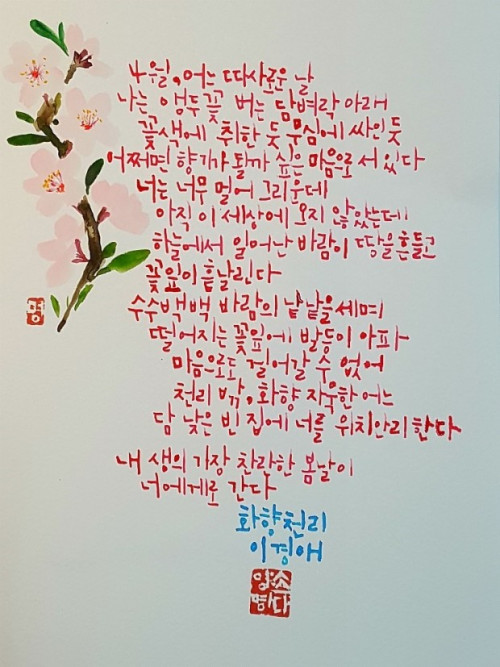 4월, 어느 따사로운 날
나는 앵두꽃 버는 담벼락 아래
꽃색에 취한 듯 무심에 싸인 듯
어쩌면 향기가 될까 싶은 마음으로 서 있다
너는 너무 멀어 그리운데
아직 이 세상에 오지 않았는데
하늘에서 일어난 바람이 땅을 흔들고
꽃잎이 흩날린다
수수백백 바람의 낱낱을 세며
떨어지는 꽃잎에 발등이 아파
마음으로도 걸어갈 수 없어
천리 밖, 화향 자욱한 어느
담 낮은 빈 집에 너를 위치안리 한다
내 생의 가장 찬란한 봄날이
너에게로 간다
화향천리
이경애
명